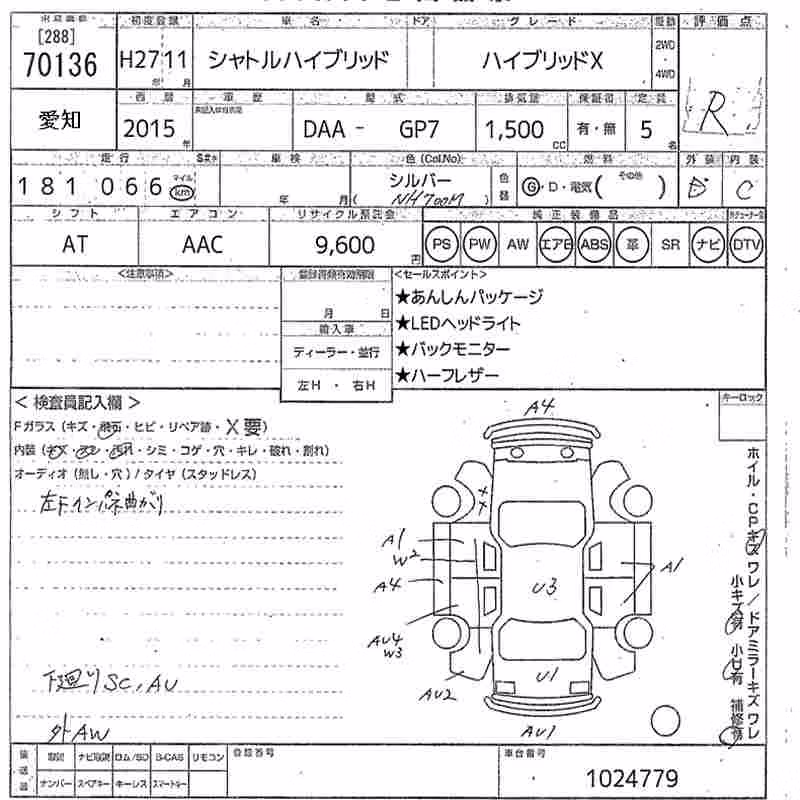 初度登録 車名 ドア グレード 駆動 評価点
[288]
70136 H27 11 シャトルハイブリッド ハイブリッドX 2WD・4WD R
年 月
愛知 西暦 車歴 型式 排気量 保証書 定員
2015年 DAA - GP7 1,500 CC 有・無 5名
走行 車検 色(Col.No) 燃料 外装 内装
181066 マイル km 年 月 シルバー 色替 G・D・電気( その他 ) C
( NH700M )
シフト エアコン リサイクル預託金 純正装備品
AT AAC 9,600円 PS PW AW エアB ABS 革 SR ナビ DTV
<注意事項> <セールスポイント>
月 日 ★あんしんパッケージ
輸入車 ★LEDヘッドライト
ディーラー・並行 ★バックモニター
左H・右H ★ハーフレザー
<検査員記入欄> キーロック
Fガラス(キズ・飛石・ヒビ・リペア跡・X要)
内装(キズ・スレ・汚れ・シミ・コゲ・穴・キレ・破れ・割れ)
オーディオ(無し・穴)/タイヤ(スタッドレス)
左Fインパネ曲がり
A4
XX
A1
W2
A4
A1
U3
AU4
W3
AU2
U1
AU1
下廻りSC,AU
外AW
ホイル・CPキズ ワレ/ドアミラーキズ ワレ
小キズ有 小凹有 補修有
ナビ取説 ロム/SD B-CAS リモコン 登録番号 車台番号
ナンバー スペアキー キーレス スマートキー 1024779